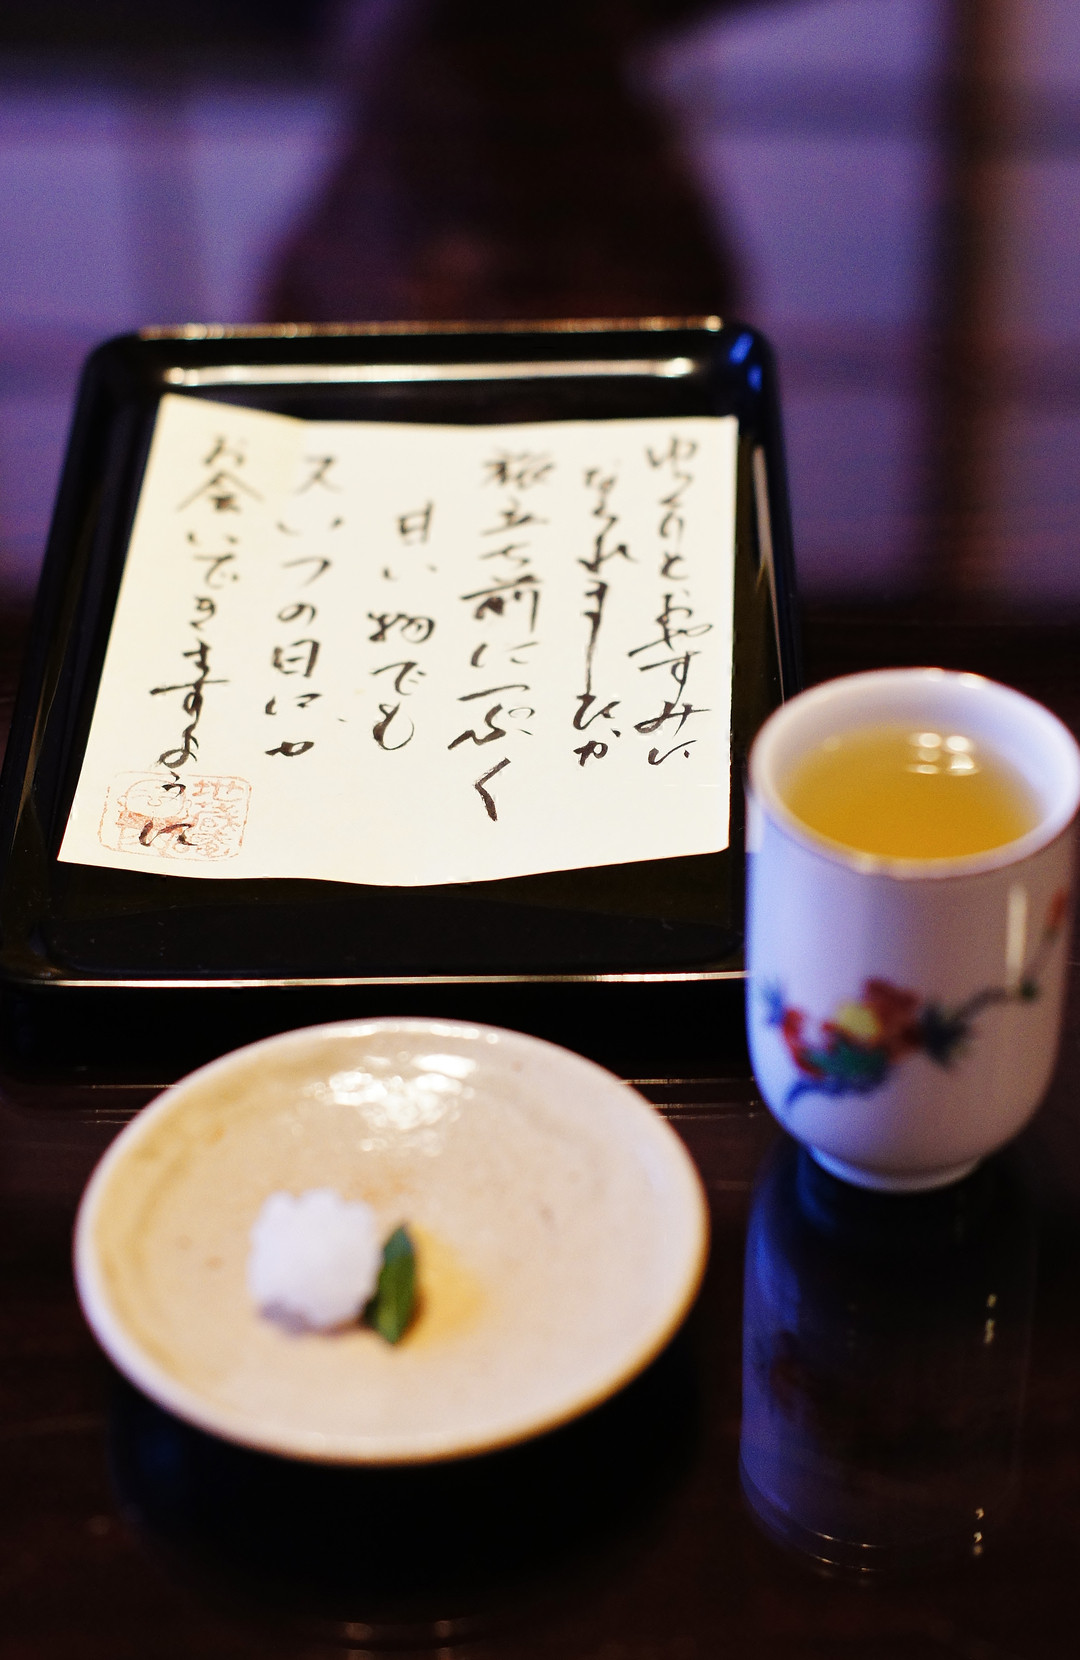 ゆっくりとおやすみに
なられましたか
旅立ち前に一ぷく
甘い物でも
又いつの日にか
お会いできますように